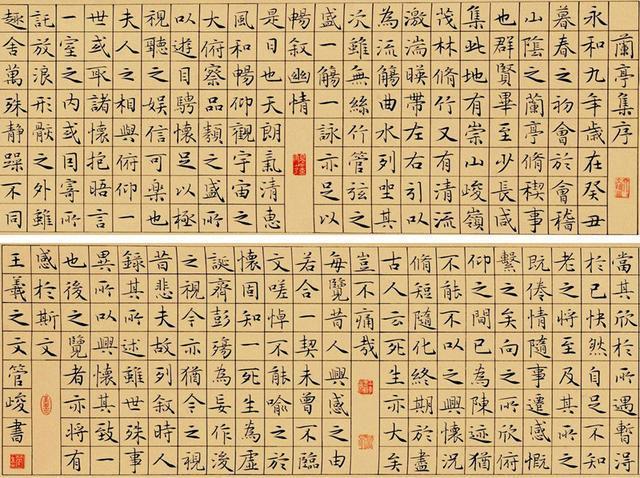 蘭亭集序
永和九年歲在癸丑
暮春之初會於會稽
山陰之蘭亭脩禊事
也群賢畢至少長咸
集此地有崇山峻嶺
茂林脩竹又有清流
激湍暎帶左右引以
為流觴曲水列坐其
次雖無絲竹管弦之
盛一觴一詠亦足以
暢敘幽情
是日也天朗氣清惠
風和暢仰觀宇宙之
大俯察品類之盛所
以遊目騁懷足以極
視聽之娛信可樂也
夫人之相與俯仰一
世或取諸懷抱晤言
一室之內或因寄所
託放浪形骸之外雖
趣舍萬殊靜躁不同
當其欣於所遇暫得
於己快然自足不知
老之將至及其所之
既倦情隨事遷感慨
繫之矣向之所欣俯
仰之間已為陳迹猶
不能不以之興懷況
脩短隨化終期於盡
古人云死生亦大矣
豈不痛哉
每覽昔人興感之由
若合一契未嘗不臨
文嗟悼不能喻之於
懷固知一死生為虛
誕齊彭殤為妄作後
之視今亦猶今之視
昔悲夫故列敘時人
錄其所述雖世殊事
異所以興懷其致一
也後之覽者亦將有
感於斯文
王羲之文管峻書